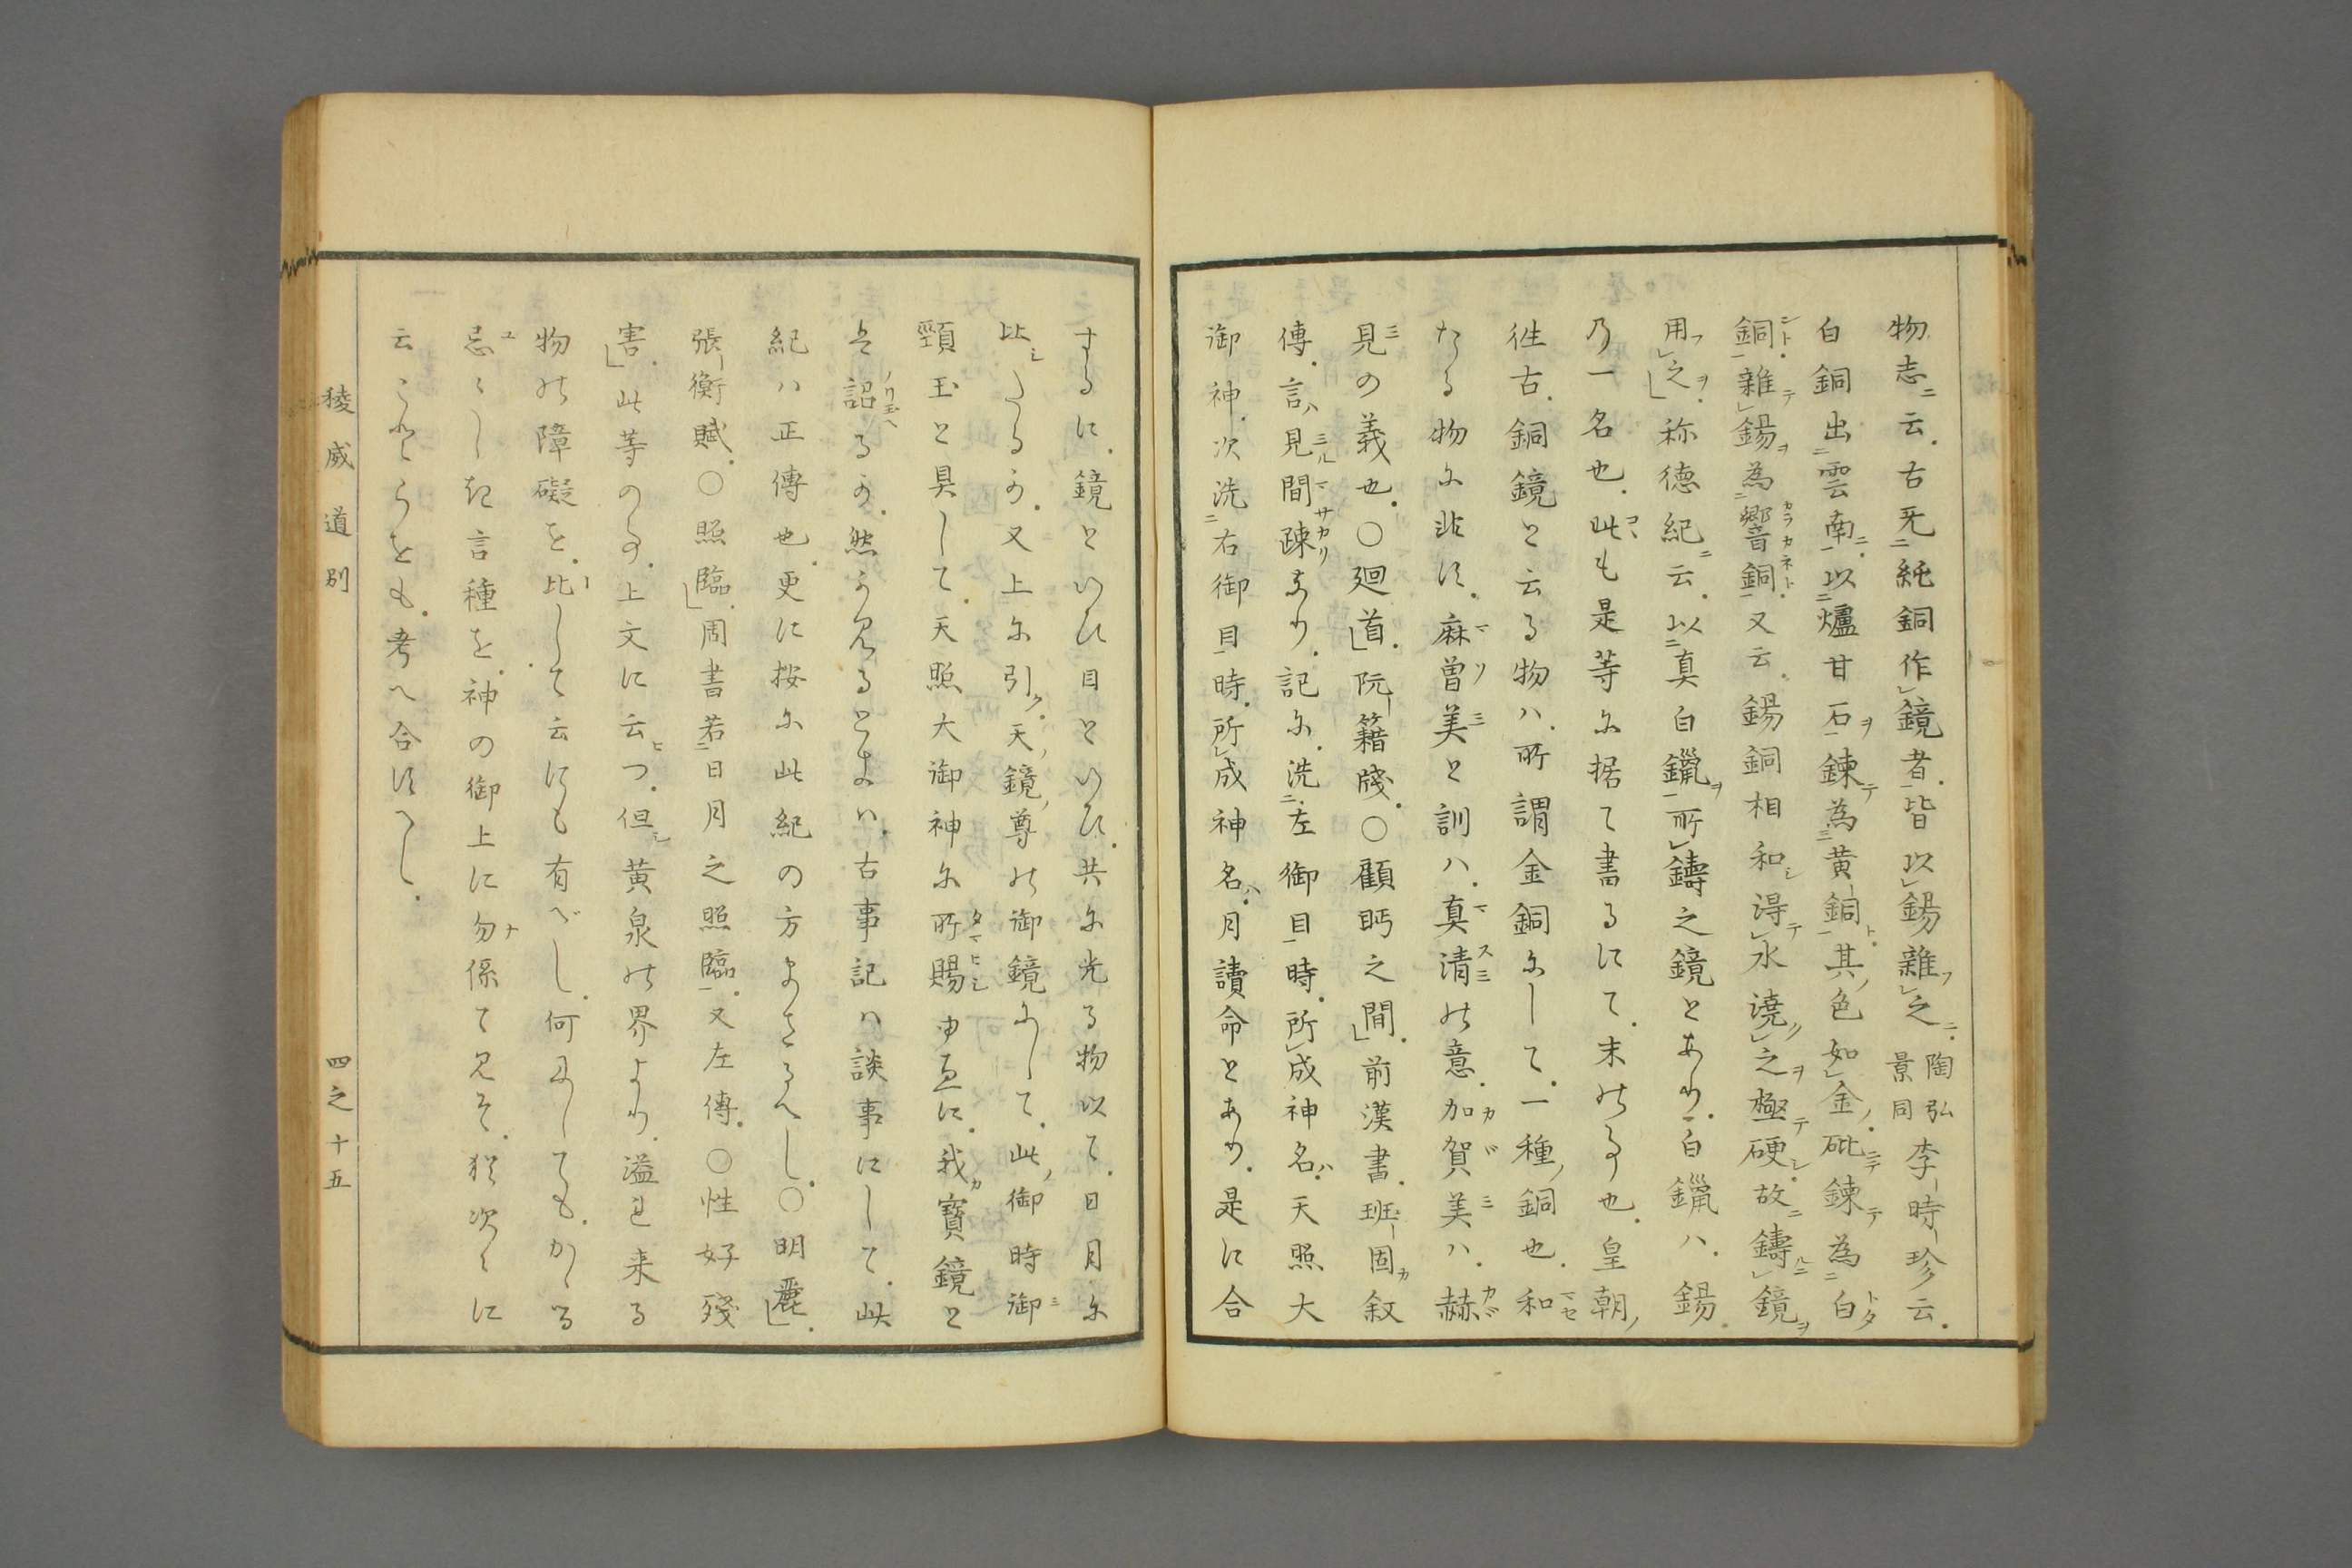 物志云。古无純銅作鏡者。皆以錫雜之。陶弘景同李時珍云。
白銅出雲南。以爐甘石鍊為黄銅。其色如金。砒鍊為白
銅。雜錫為響銅。又云。錫銅相和得水澆之極硬。故鑄鏡
用之。称徳紀云。以真白鑞所鑄之鏡とあり。白鑞ハ。錫
乃一名也。此も是等尓据て書るにて。末のる也。皇朝
徃古。銅鏡と云る物ハ。所謂金銅尓して。一種ノ銅也。和
たる物尓非ず。麻曽美と訓ハ。真清の意。加賀美ハ。赫
見の義也。〇廻首。阮籍牋。〇顧眄之間。前漢書。班固叙
傳。言ハ見間疎なり。記尓。洗左御目時。所成神名ハ。天照大
御神。次洗右御目時。所成神名ハ。月讀命とあり。是に合
するに。鏡といひ目といひ。共尓光る物以て。日月尓
比したるか。又上尓引ク。天ノ鏡ノ尊の御鏡尓して。此ノ御時御
頸玉と具して。天照大御神尓所賜ゆゑに。我寶鏡と
詔るか。然か見るときハ。古事記ハ談事にして。此
紀ハ正傳也。更に按尓此紀の方まさるへし。〇明麗。
張衡賦。〇照臨。周書若日月之照臨。又左傳。〇性好殘
害。此等の。上文に云つ。但シ黄泉の界より溢れ来る
物の障礙を。比して云にも有べし。何尓してもかゝる
忌々しき言種を。神の御上に勿係て見そ。猶次々に
云ことゝもをも。考へ合すへし。
稜威道別
四之十五